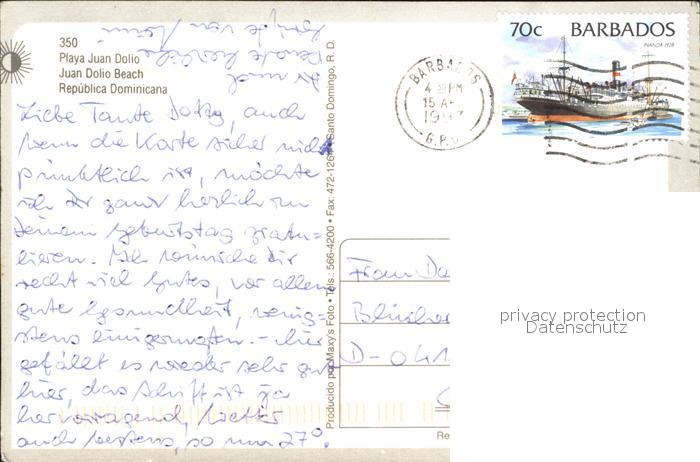 350
Playa Juan Dolio
Juan Dolio Beach
República Dominicana
Liebe Tante Dotty, auch
wenn die Karte sicher nicht
pünktlich ist, möchte
ich Dir ganz herzlich zu
Deinem Geburtstag gratu=
lieren. Ich wünsche Dir
recht viel Gutes, vor allem
gute Gesundheit, wenig=
stens einigermaßen. – Mir
gefällt es wieder sehr gut
hier, das Schiff ist ja
hervorragend, Wetter
auch bestens, so um 27°.
Dir noch
herzliche
Grüße von
Producido por Maxy's Foto • Tels.: 566-4200 • Fax: 472-1264 • Santo Domingo, R. D.
BARBADOS
4 PM
15 AP
1997
G.P.O
70c BARBADOS
INANDA 1928
Frau Do
Blücher
D-041
Re
privacy protection
Datenschutz